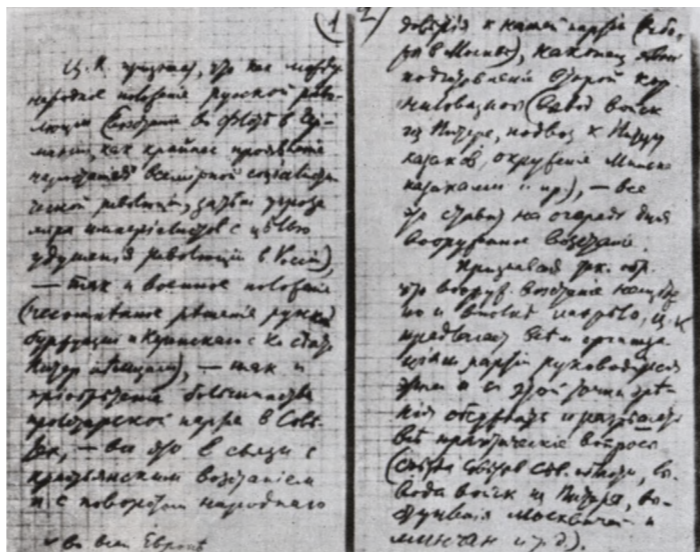 (1
Ц.К. признает, что как между-
народное положение русской рево-
люции (восстание во флоте в Гер-
мании, как крайнее проявление
нарастания всемирной социалисти-
ческой революции, затем угроза
мира империалистов с целью
удушения революции в России),
— так и военное положение
(несомненное решение русской
буржуазии и Керенского с Ко сдать
Питер немцам), — так и
приобретение большинства
пролетарской партией в Сове-
тах, — все это в связи с
крестьянским восстанием
и с поворотом народного
√ во всей Европе
2)
доверия к нашей партии (выбо-
ры в Москве), наконец явное
подготовление второй кор-
ниловщины (вывод войск
из Питера, подвоз к Питеру
казаков, окружение Минска
казаками и пр.), — все
это ставит на очередь дня
вооруженное восстание.
Признавая так. обр.,
что вооруж. восстание неизбеж-
но и вполне назрело, Ц.К.
предлагает всем организа-
циям партии руководиться
этим и с этой точки зре-
ния обсуждать и разрешать
все практические вопросы
(съезда Советов Сев. области, вы-
вода войск из Питера, вы-
ступления москвичей и
минчан и т.д.).